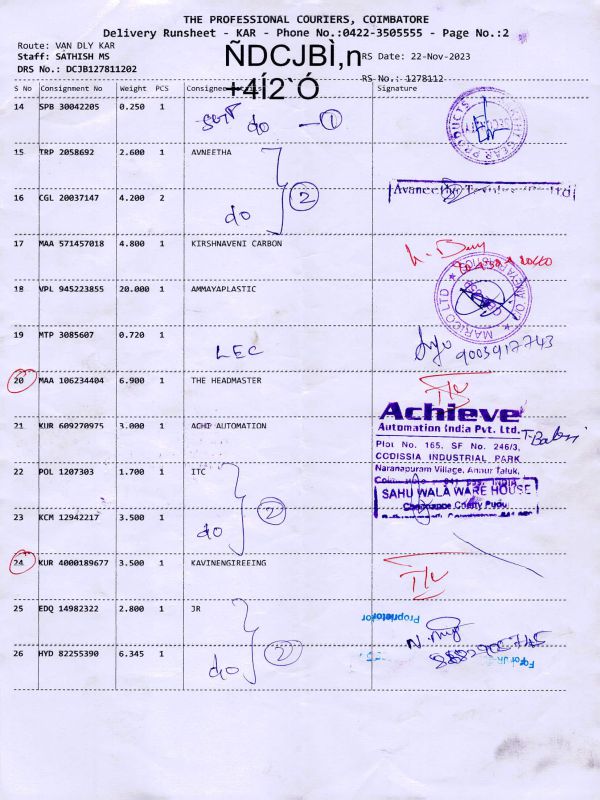 THE PROFESSIONAL COURIERS, COIMBATORE
Delivery Runsheet - KAR - Phone No.:0422-3505555 - Page No.:2
Route: VAN DLY KAR
Staff: SATHISH MS ÑDCJBÌ,n RS Date: 22-Nov-2023
DRS No.: DCJB127811202 +4Í2`Ó RS No.: 1278112
S No Consignment No Weight PCS Consignee Details Signature
14 SPB 30042205 0.250 1
do - 1
15 TRP 2058692 2.600 1 AVNEETHA
16 CGL 20037147 4.200 2
do 2
17 MAA 571457018 4.800 1 KIRSHNAVENI CARBON
18 VPL 945223855 20.000 1 AMMAYAPLASTIC
MARICO LTD
19 MTP 3085607 0.720 1
LEC 9003917743
20 MAA 106234404 6.900 1 THE HEADMASTER
21 KUR 609270975 3.000 1 ACHI AUTOMATION
Achieve
Automation India Pvt. Ltd.
Plot No. 165, SF No. 246/3,
CODISSIA INDUSTRIAL PARK
Naranapuram Village, Annur Taluk,
22 POL 1207303 1.700 1 ITC
SAHU WALA WARE HOUSE
23 KCM 12942217 3.500 1
do 2
24 KUR 4000189677 3.500 1 KAVINENGIREEING
25 EDQ 14982322 2.800 1 JR
Proprietor
26 HYD 82255390 6.345 1
do 2
For JR